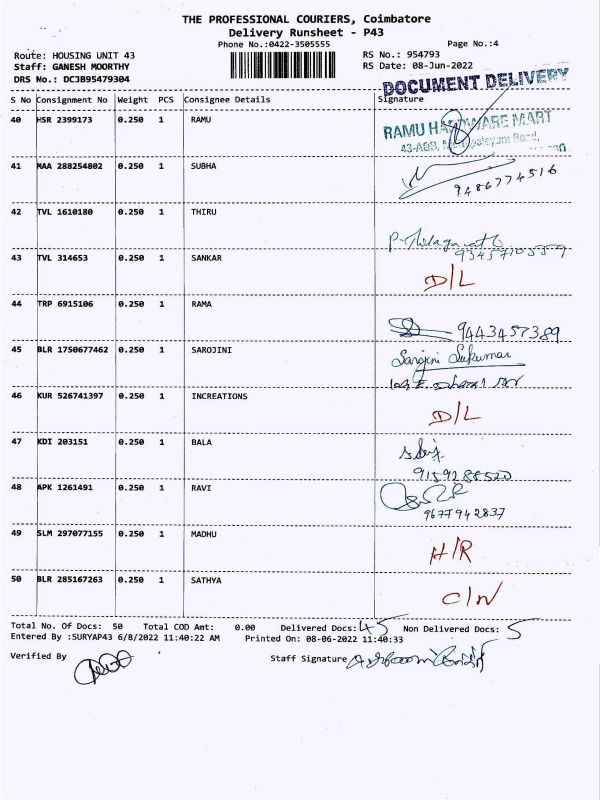 THE PROFESSIONAL COURIERS, Coimbatore
Delivery Runsheet - P43
Phone No.:0422-3505555
Page No.:4
Route: HOUSING UNIT 43
RS No.: 954793
Staff: GANESH MOORTHY
RS Date: 08-Jun-2022
DRS No.: DCJB95479304
DOCUMENT DELIVERY
S No Consignment No Weight PCS Consignee Details Signature
40 HSR 2399173 0.250 1 RAMU
RAMU HARDWARE MART
41 MAA 288254802 0.250 1 SUBHA
9486774516
42 TVL 1610180 0.250 1 THIRU
43 TVL 314653 0.250 1 SANKAR
D/L
44 TRP 6915106 0.250 1 RAMA
9443457389
45 BLR 1750677462 0.250 1 SAROJINI
Sarojini Sukumar
46 KUR 526741397 0.250 1 INCREATIONS
D/L
47 KDI 203151 0.250 1 BALA
9159288520
48 APK 1261491 0.250 1 RAVI
9677942837
49 SLM 297077155 0.250 1 MADHU
H/R
50 BLR 285167263 0.250 1 SATHYA
C/N
Total No. Of Docs: 50 Total COD Amt: 0.00 Delivered Docs: 45 Non Delivered Docs: 5
Entered By :SURYAP43 6/8/2022 11:40:22 AM Printed On: 08-06-2022 11:40:33
Verified By
Staff Signature